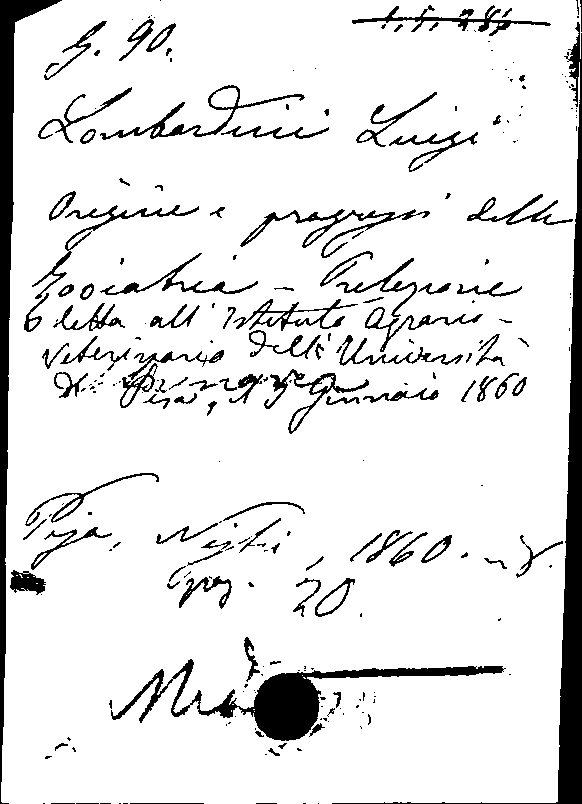 1.5.286
G. 90.
Lombardini Luigi
Origine e progressi della
Zooiatria - Prelezione
letta all'Istituto Agrario-
Veterinario dell'Università
di Pisa, il 5 Gennaio 1860
Pisa, Nistri, 1860. in 8.
pag. 20.